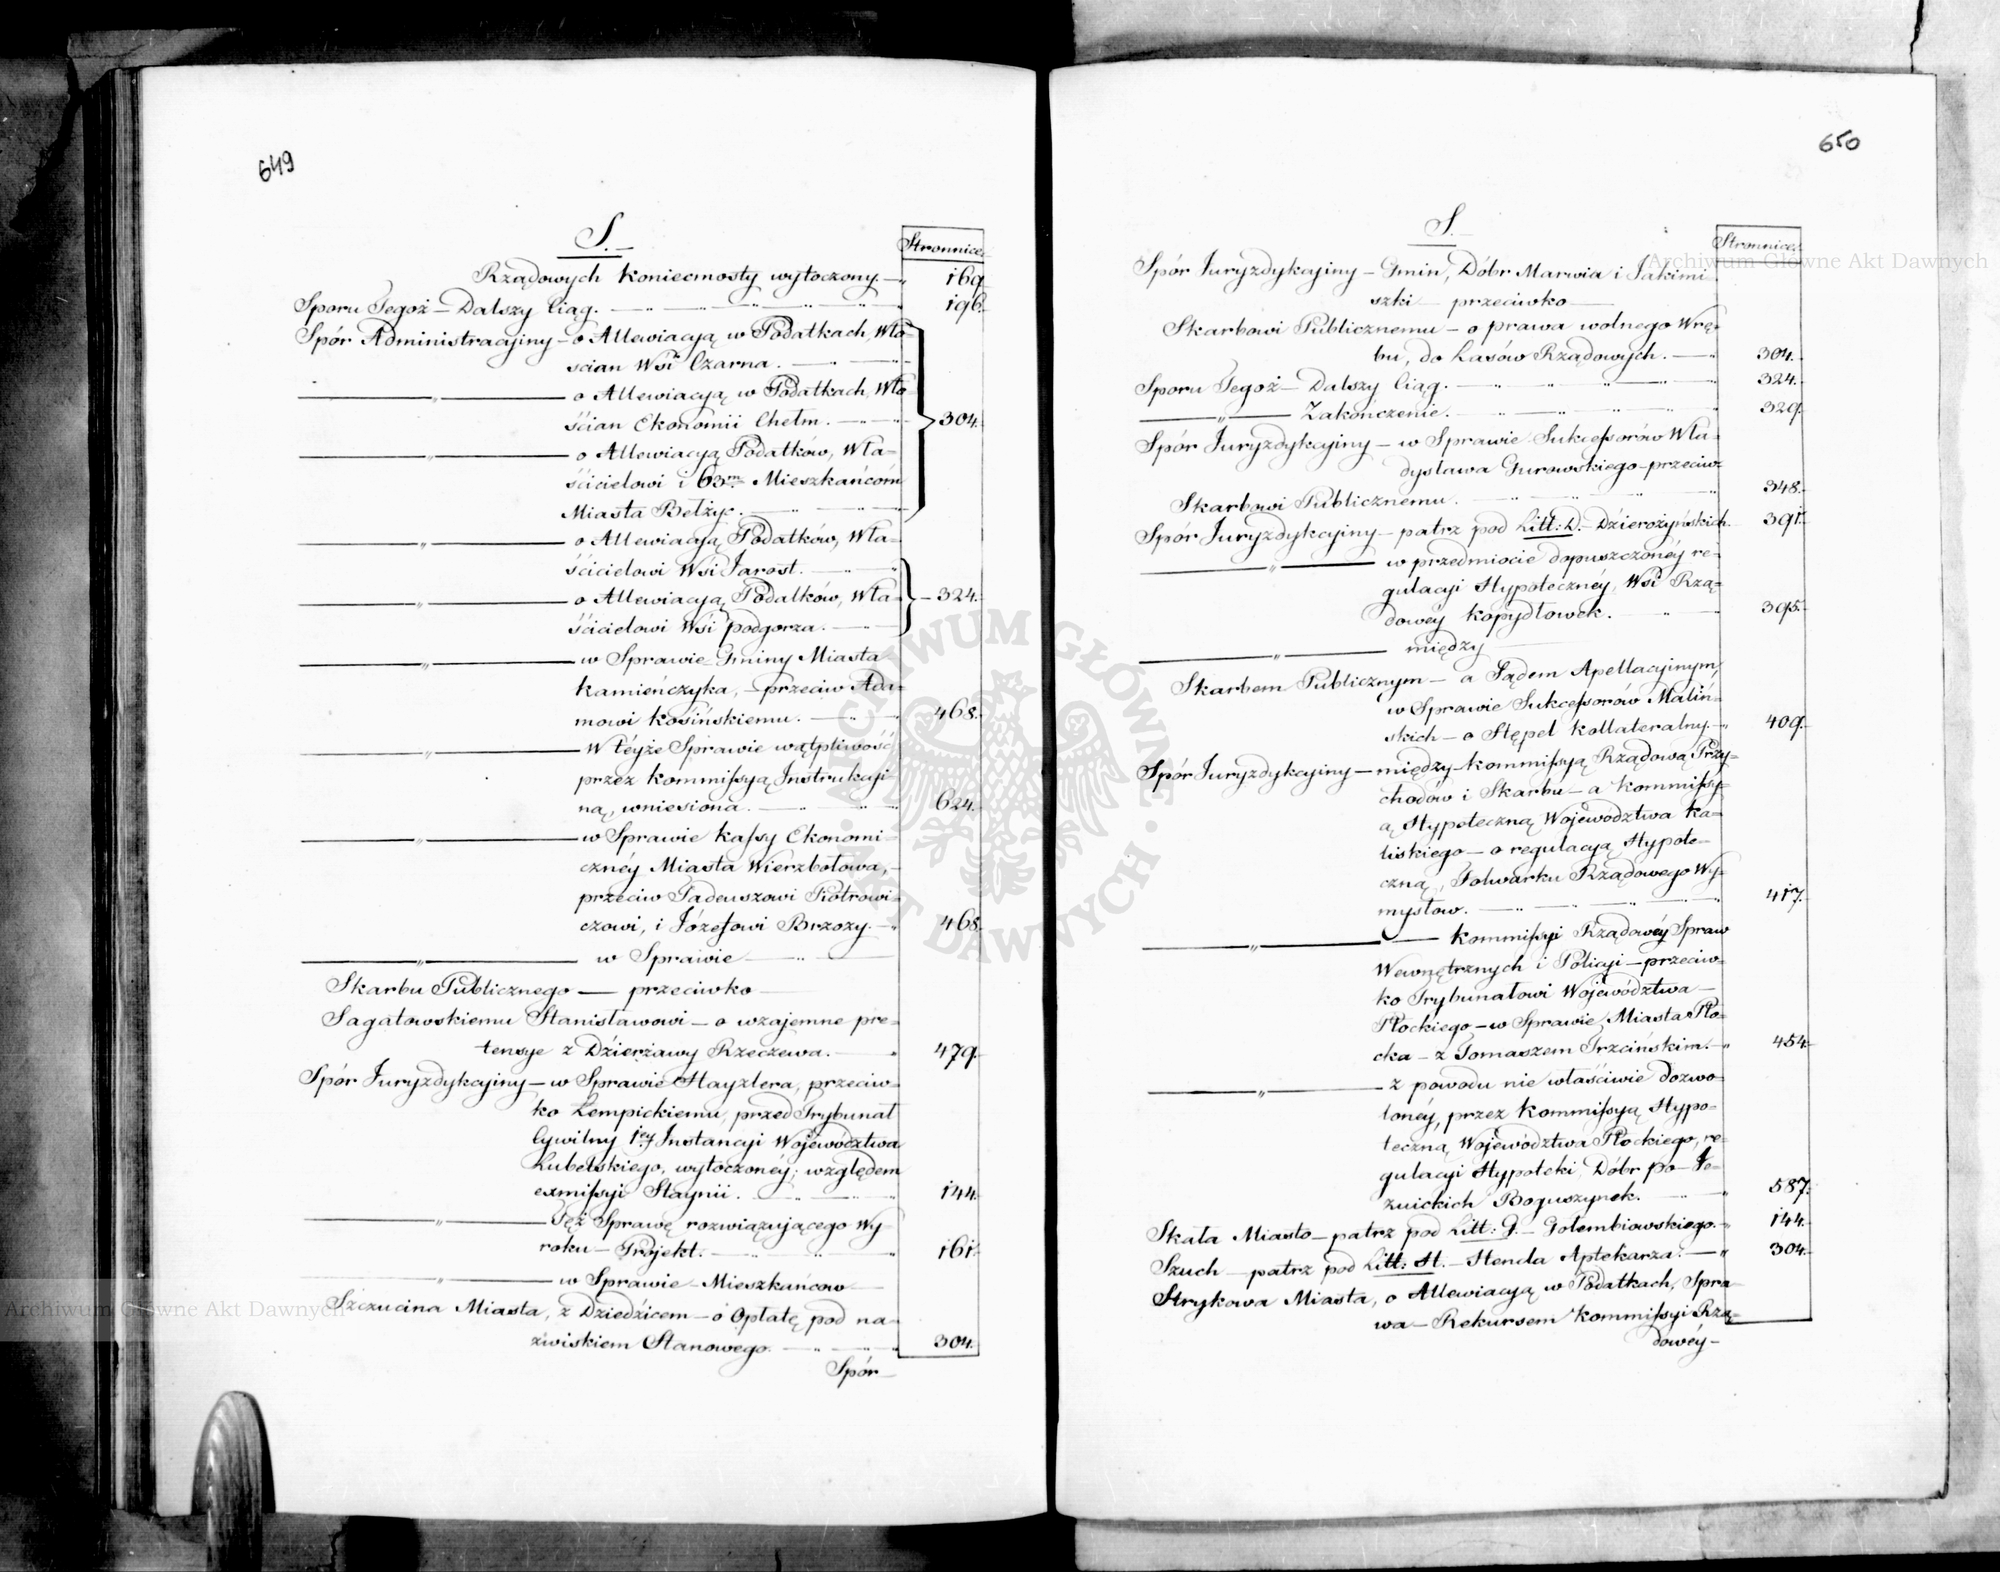 649
S.
Stronnice.
Rządowych koniecmosty wytoczony. 169.
Sporu Tegoż – Dalszy Ciąg. 196.
Spór Administracyiny – o Allewiacyą w Podatkach, Wło=
ścian Wsi Czarna.
„ o Allewiacyą w Podatkach, Wło
ścian Ekonomii Chełm. 304.
„ o Allewiacyą Podatków, Wła=
ścicielowi i 63m Mieszkańcom
Miasta Bełżyc.
„ o Allewiacyą Podatków, Wła=
ścicielowi Wsi Jarost.
„ o Allewiacyą Podatków, Wła= 324.
ścicielowi Wsi podgorza.
„ w Sprawie Gminy Miasta
Kamieńczyka, – przeciw Ada=
mowi Kosińskiemu. 468.
„ W téyże Sprawie wątpliwość
przez Kommissyą Instrukcyi
ną, wniesiona. 624.
„ w Sprawie Kassy Ekonomi=
cznéy Miasta Wierzbołowa,
przeciw Tadeuszowi Piotrowi=
czowi, i Józefowi Brzozy. 468.
„ w Sprawie
Skarbu Publicznego — przeciwko
Sagatowskiemu Stanisławowi – o wzajemne pre=
tensye z Dzierżawy Rzeczewa. 479.
Spór Juryzdykcyiny – w Sprawie Hayzlera, przeciw=
ko Łempickiemu, przed Trybunał
Cywilny 1ey Instancyi Województwa
Lubelskiego, wytoczonéy; względem
exmissyi Staynii. 144.
„ Téż Sprawę rozwiązującego Wy=
roku – Projekt. 161.
„ w Sprawie – Mieszkańcow
Szczucina Miasta, z Dziedzicem – o Opłatę pod na=
zwiskiem Stanowego. 304.
Spór
650
S.
Stronnice.
Spór Juryzdykcyiny – Gmin, Dóbr Marwia i Jakimi
szki – przeciwko
Skarbowi Publicznemu – o prawa wolnego Wrę=
bu, do Lasów Rządowych. 304.
Sporu Tegoż – Dalszy Ciąg. 324.
„ Zakończenie. 329.
Spór Juryzdykcyiny – w Sprawie Sukcessorów Wła=
dysława Gurowskiego – przeciw
Skarbowi Publicznemu. 348.
Spór Juryzdykcyiny – patrz pod Litt: D. – Dzierożyńskich. 391.
„ w przedmiocie dopuszczonéy re=
gulacyi Hypotecznéy, Wsi Rzą=
dowey Kopydłowek. 395.
„ między
Skarbem Publicznym – a Sądem Apellacyinym,
w Sprawie Sukcessorów Maliń=
skich – o Stępel kollateralny. 409.
Spór Juryzdykcyiny – między Kommissyą Rządową Przy=
chodow i Skarbu – a Kommissy=
ą Hypoteczną Województwa Ka=
liskiego – o regulacyą Hypote=
czną, Folwarku Rządowego Wy=
mysłow. 417.
„ Kommissyi Rządowéy Spraw
Wewnętrznych i Policyi – przeciw=
ko Trybunałowi Województwa –
Płockiego – w Sprawie Miasta Pło=
cka – z Tomaszem Trzcińskim. 454.
„ z powodu nie właściwie dozwo=
lonéy, przez Kommissyą Hypo=
teczną Województwa Płockiego, re=
gulacyi Hypoteki Dóbr po – Je=
zuickich Boguszynek. 587.
Skała Miasto – patrz pod Litt: G. – Gołembiowskiego. 144.
Szuch – patrz pod Litt: H. – Henda Aptekarza. 304.
Strykowa Miasta, o Allewiacyą w Podatkach, Spra=
wa – Rekursem Kommissyi Rzą=
dowéy –
Archiwum Główne Akt Dawnych
Archiwum Główne Akt Dawnych
ARCHIWUM GŁÓWNE · AKT DAWNYCH ·